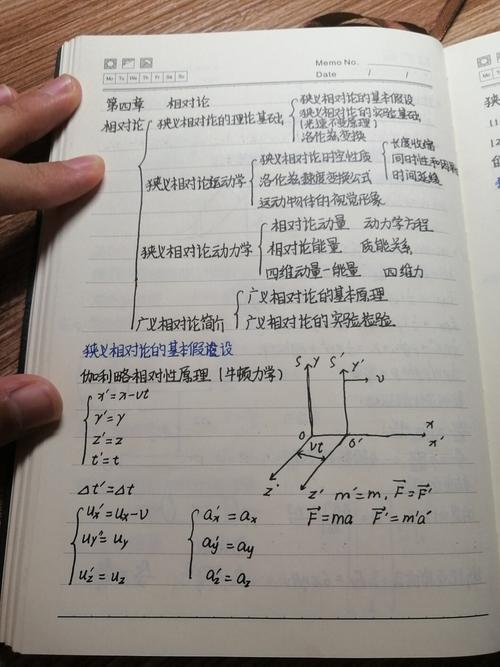 Memo No.
Mo Tu We Th Fr Sa Su
Date / /
第四章 相对论
相对论
狭义相对论的理论基础
狭义相对论的基本假设
狭义相对论的实验基础
(光速不变原理)
洛伦兹变换
狭义相对论运动学
狭义相对论时空性质
长度收缩
同时性和因果
时间延缓
洛伦兹速度变换公式
运动物体的视觉形象
狭义相对论动力学
相对论动量 动力学方程
相对论能量 质能关系
四维动量-能量 四维力
广义相对论简介
广义相对论的基本原理
广义相对论的实验检验
狭义相对论的基本假设
伽利略相对性原理(牛顿力学)
x'=x-vt
y'=y
z'=z
t'=t
S y S' y' v
O vt O' x x'
z z'
m'=m, F⃗=F⃗'
F⃗=ma F⃗'=m'a'
Δt'=Δt
ux'=ux-v
uy'=uy
uz'=uz
ax'=ax
ay'=ay
az'=az